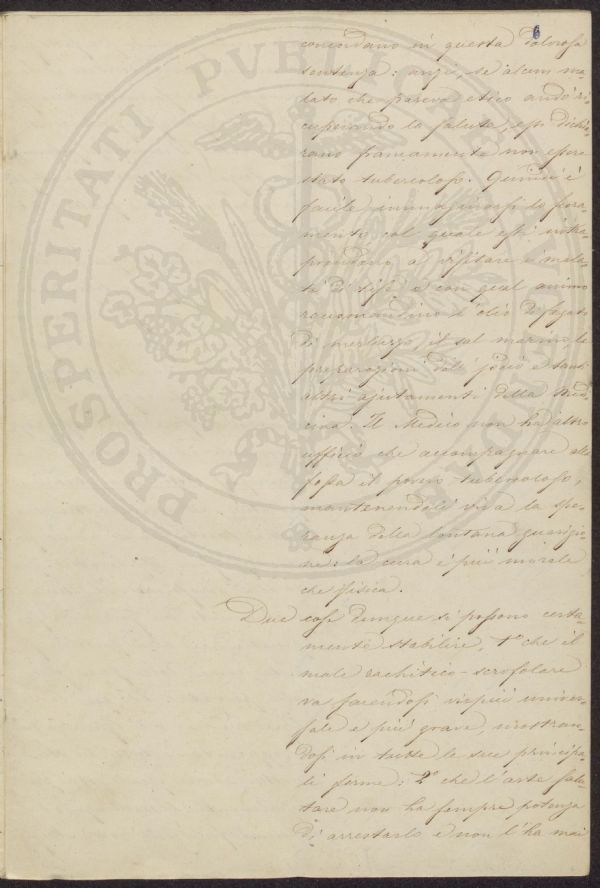 6
PROSPERITATI PUBLICAE
concordano in questa dolorosa
sentenza: anzi, se alcun ma-
lato che pareva etico andò ri-
cuperando la salute, essi dichia-
rano francamente non essere
stato tubercoloso. Quindi è
facile immaginarsi lo scora-
mento col quale essi intra-
prendono a visitare i mala-
ti di tisi e con qual animo
raccomandino l'olio di fegato
di merluzzo, il sal marino, le
preparazioni dell'jodio e tanti
altri ajutamenti della medi-
cina. Il Medico non ha altro
ufficio che accompagnare alla
fossa il povero tubercoloso,
mantenendoli viva la spe-
ranza della lontana guarigio-
ne: la cura è più morale
che fisica.
Due cose dunque si possono certa-
mente stabilire, 1º che il
male rachitico-scrofolare
va facendosi vieppiù univer-
sale e più grave, mostran-
dosi in tutte le sue principa-
li forme; 2º che l'arte salu-
tare non ha sempre potenza
di arrestarlo e non l'ha mai